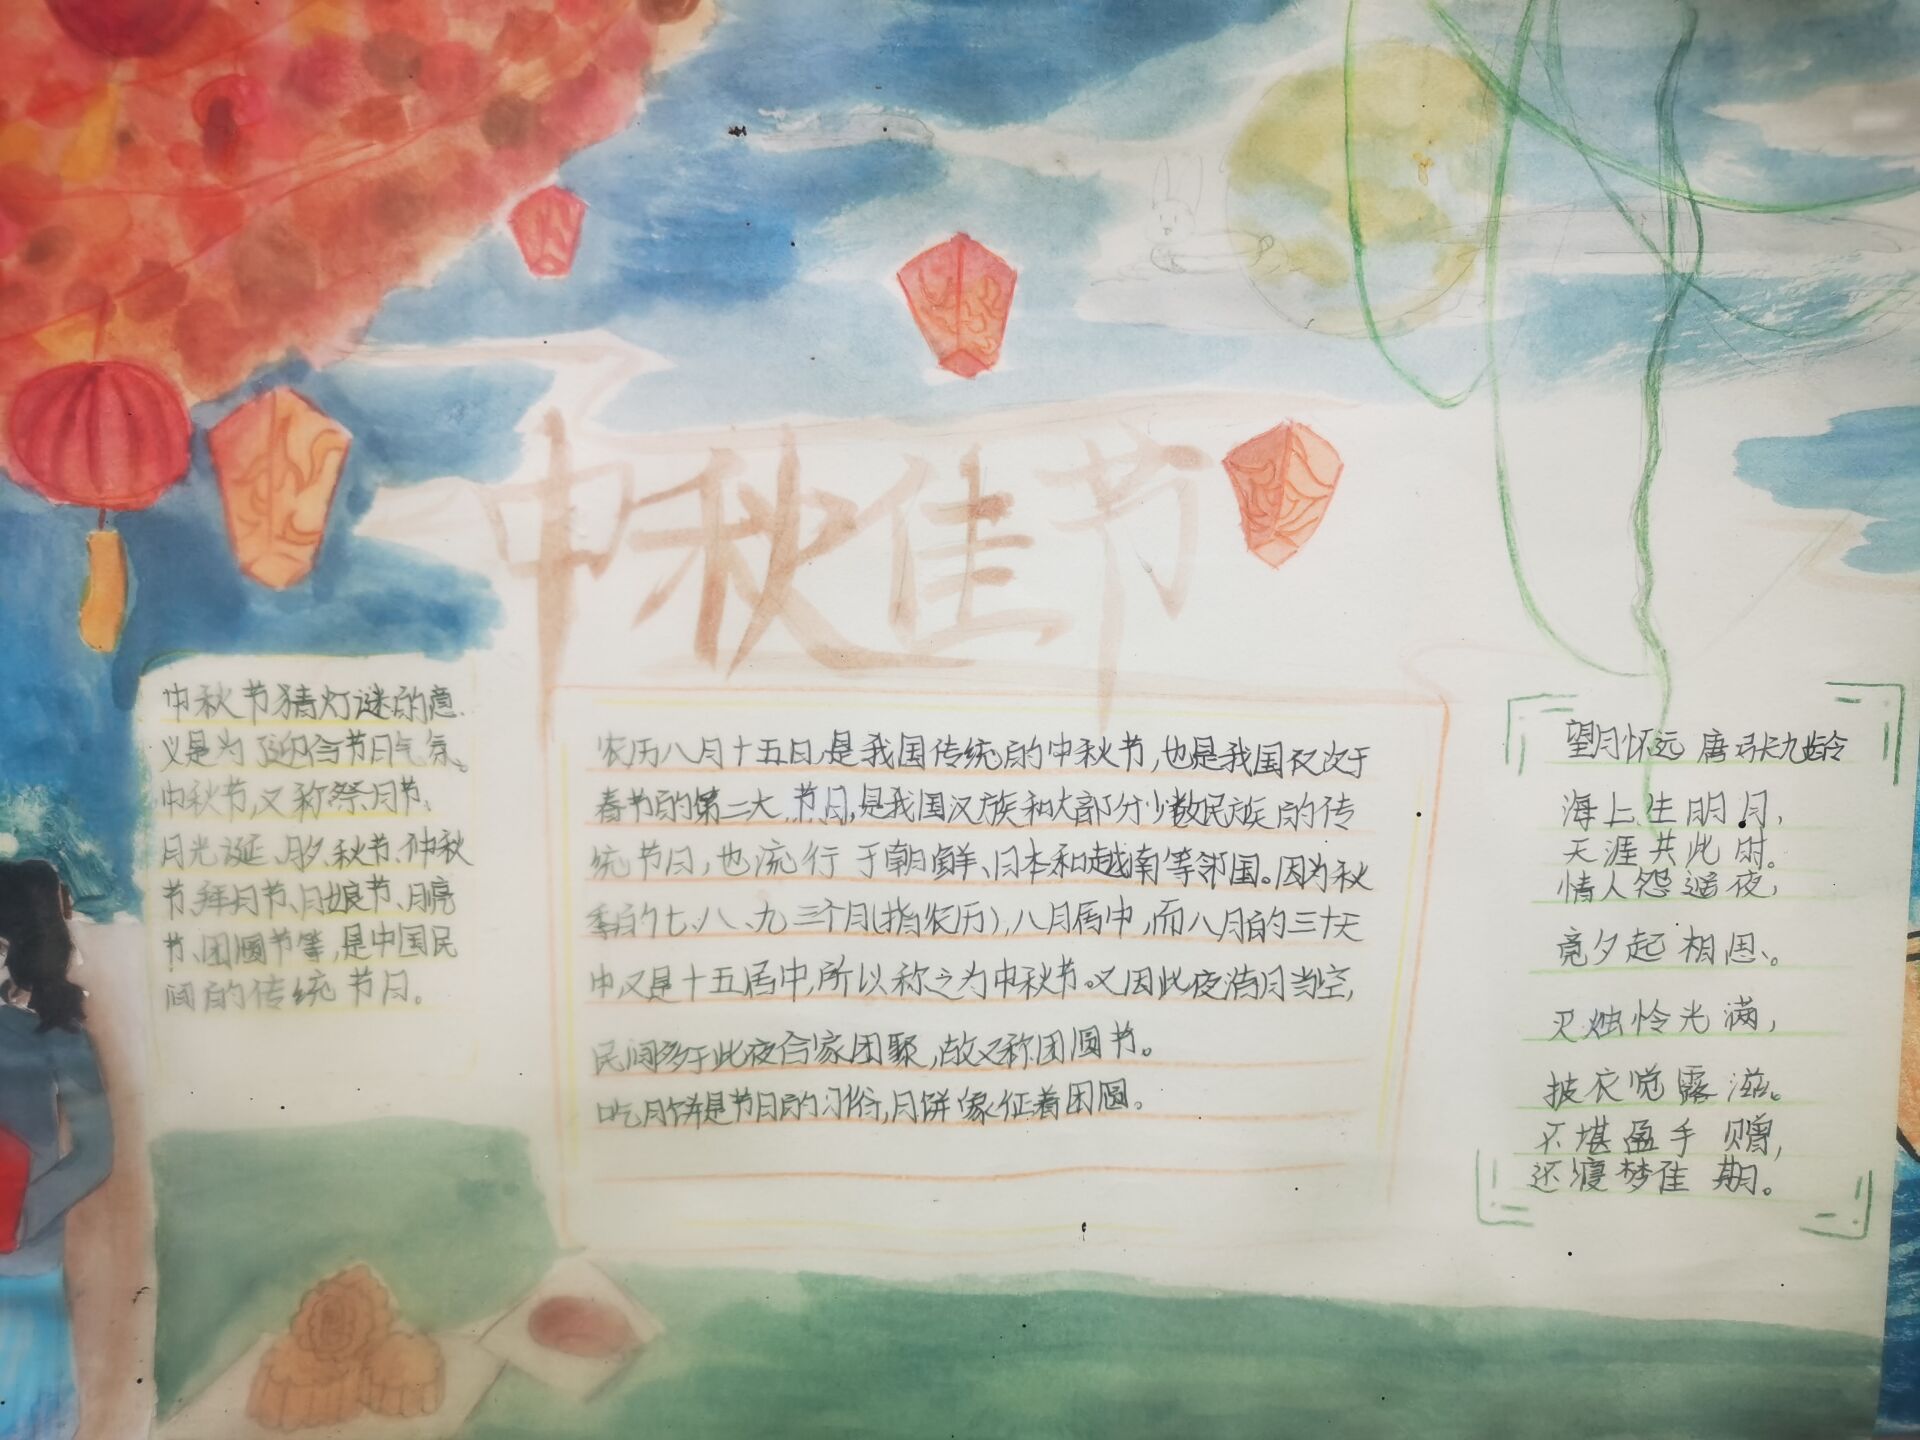 中秋佳节
中秋节猜灯谜的意
义是为了迎合节日气氛。
中秋节,又称祭月节、
月光诞、月夕、秋节、仲秋
节、拜月节、月娘节、月亮
节、团圆节等,是中国民
间的传统节日。
农历八月十五日,是我国传统的中秋节,也是我国仅次于
春节的第二大节日,是我国汉族和大部分少数民族的传
统节日,也流行于朝鲜、日本和越南等邻国。因为秋
季的七、八、九三个月(指农历),八月居中,而八月的三十天
中,又是十五居中,所以称之为中秋节。又因此夜浩月当空,
民间多于此夜合家团聚,故又称团圆节。
吃月饼是节日的习俗,月饼象征着团圆。
望月怀远 唐 张九龄
海上生明月,
天涯共此时。
情人怨遥夜,
竟夕起相思。
灭烛怜光满,
披衣觉露滋。
不堪盈手赠,
还寝梦佳期。